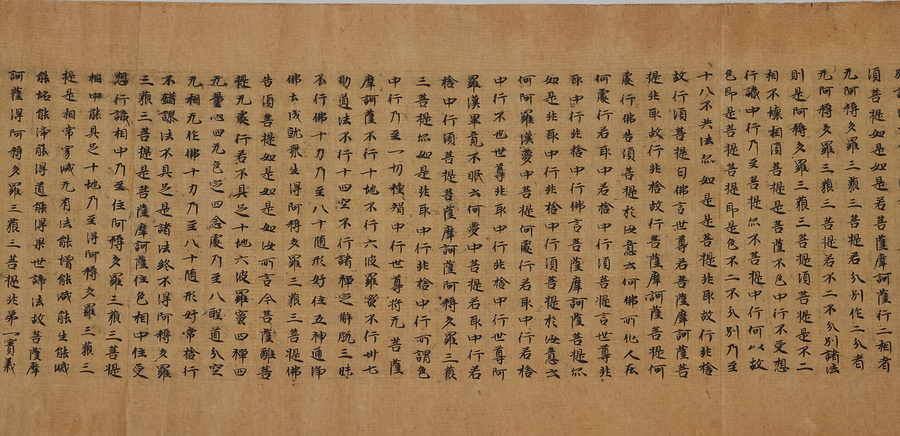 須菩提如是若菩薩摩訶行二相者
无阿耨多羅三藐三菩提若分別作二分者
无阿耨多羅三藐三菩提若不二不分別諸法
則是阿耨多羅三藐三菩提須菩提是不二
相不壞相須菩提是菩提色中行不受想
行識中行乃至菩提亦不菩提中行何以故
色即是菩提菩提即是色不二不分別乃至
十八不共法亦如是是菩提非取故行非捨
故行須菩提白佛言世尊若菩薩摩訶薩菩
提非取故行非捨故行菩薩摩訶薩菩提何
處行佛告須菩提於汝意云何佛所化人在
何處行若取中若捨中行須菩提言世尊非
取中行非捨中行佛言菩薩摩訶薩菩提亦
如是非取中行非捨中行須菩提於汝意云
何阿羅漢夢中菩提何處行若取中行若捨
中行不也世尊非取中行非捨中行世尊阿
羅漢畢竟不眠云何夢中菩提若取中行若
捨中行須菩提菩薩摩訶薩阿耨多羅三藐
三菩提亦如是非取中行非捨中行所謂色
中行乃至一切種智中行世尊將无菩薩
摩訶薩不行十地不行六波羅蜜不行卅七
助道法不行十四空不行諸禪定解脫三昧
不行佛十力乃至八十隨形好住五神通淨
佛土成就眾生得阿耨多羅三藐三菩提佛
告須菩提如是如是如汝所言今菩薩雖菩
提无處行若不具足十地六波羅蜜四禪四
无量心四无色定四念處乃至八聖道分空
无相无作佛十力乃至八十隨形好常捨行
不錯謬法不具足是諸法終不得阿耨多羅
三藐三菩提是菩薩摩訶薩住色相中住受
想行識相中乃至住阿耨多羅三藐三菩提
相中能具足十地乃至得阿耨多羅三藐三
提是相常寂滅无有法能增能減能生能滅
能垢能淨能得道能得果世諦法故菩薩摩
訶薩得阿耨多羅三藐三菩提非第一實義